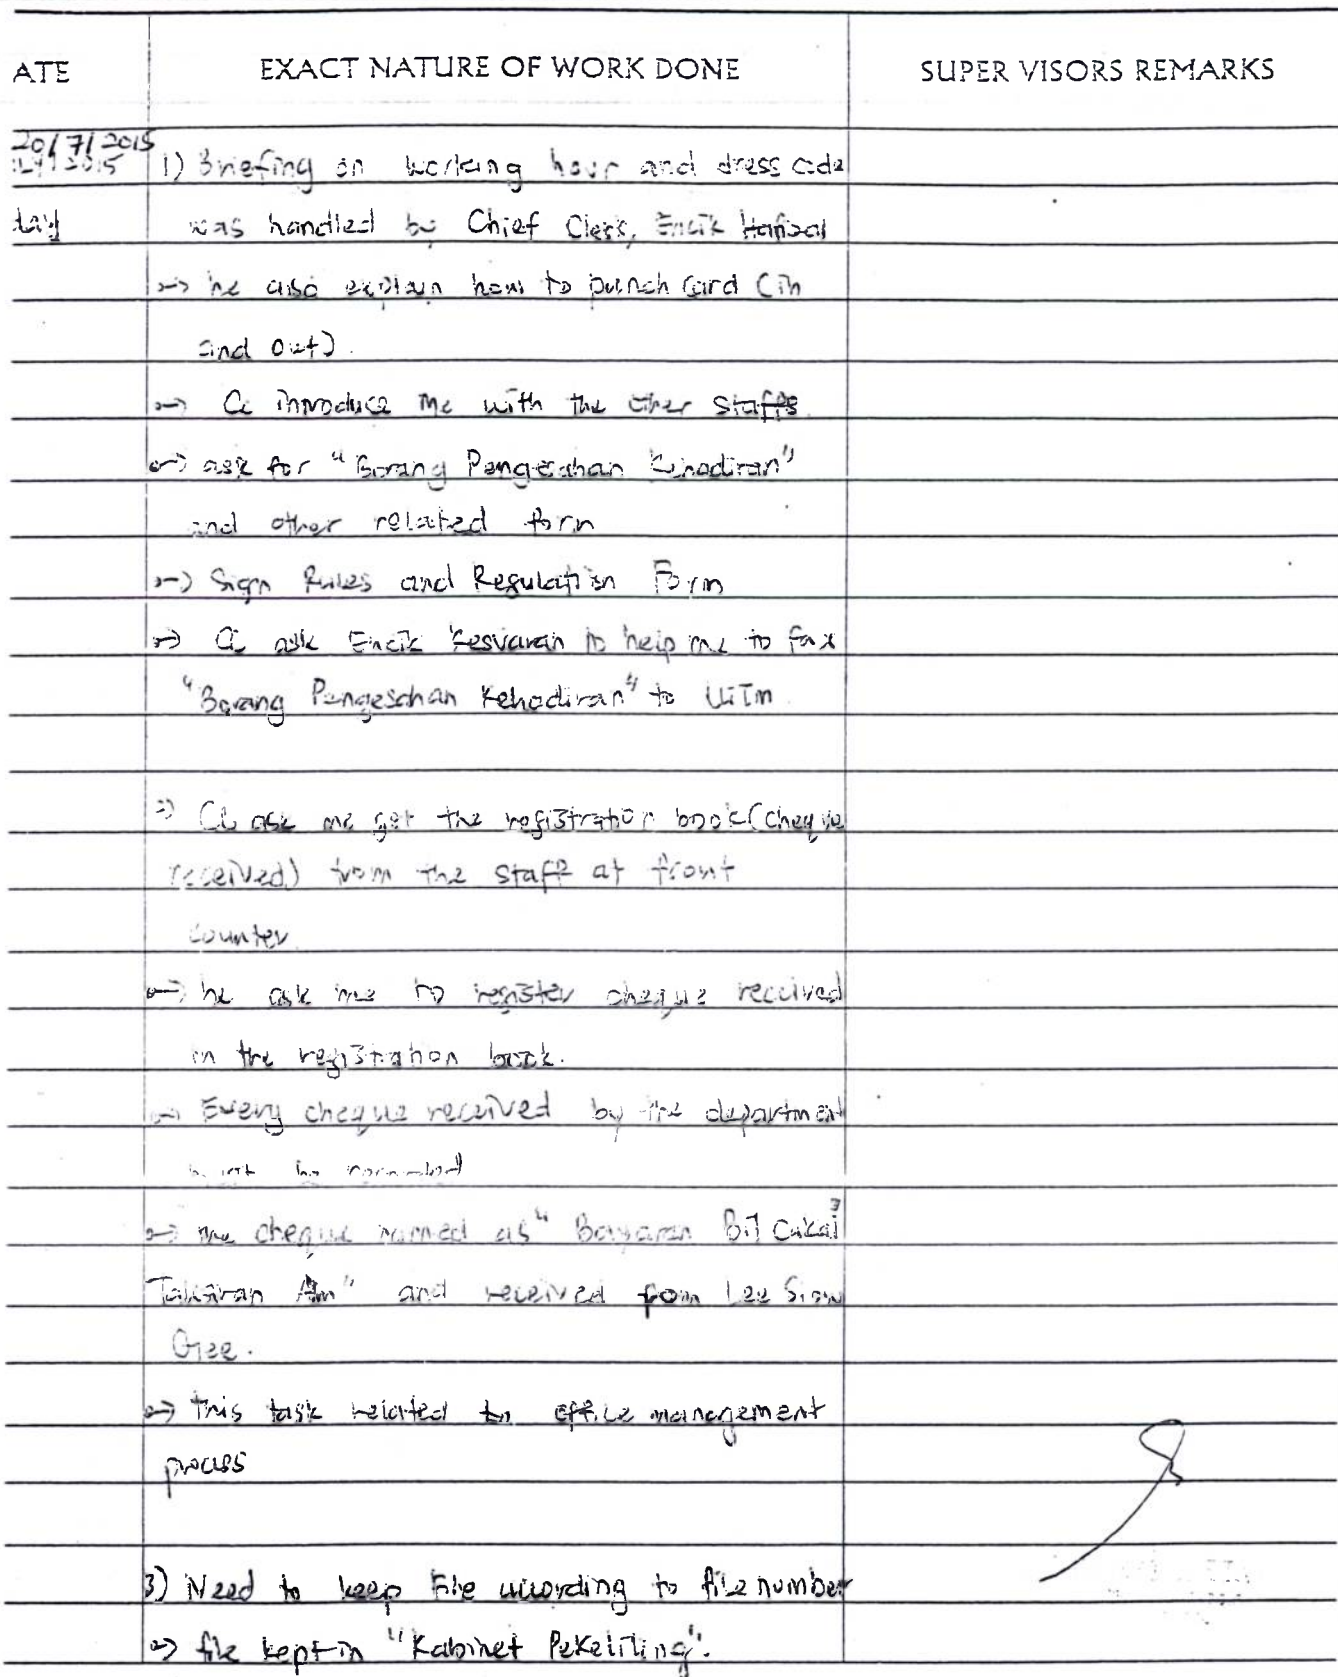 ATE EXACT NATURE OF WORK DONE SUPER VISORS REMARKS
20/7/2015
1) Briefing on working hour and dress code
was handled by Chief Clerk, Encik Hafizal
→ he also explain how to punch card (in
and out).
→ CC introduce me with the other staffs
→ ask for "Borang Pengesahan Kehadiran"
and other related form
→ Sign Rules and Regulation Form
→ CC ask Encik Kesvaran to help me to fax
"Borang Pengesahan Kehadiran" to UiTM.
→ CC ask me get the registration book (cheque
received) from the staff at front
counter
→ he ask me to register cheque received
in the registration book.
→ Every cheque received by the department
must be recorded
→ the cheque named as "Bayaran Bil Cukai
Taksiran Am" and received from Lee Siow
Gee.
→ This task related to office management
process
3) Need to keep file according to file number
→ file kept in "Kabinet Pekeliling".